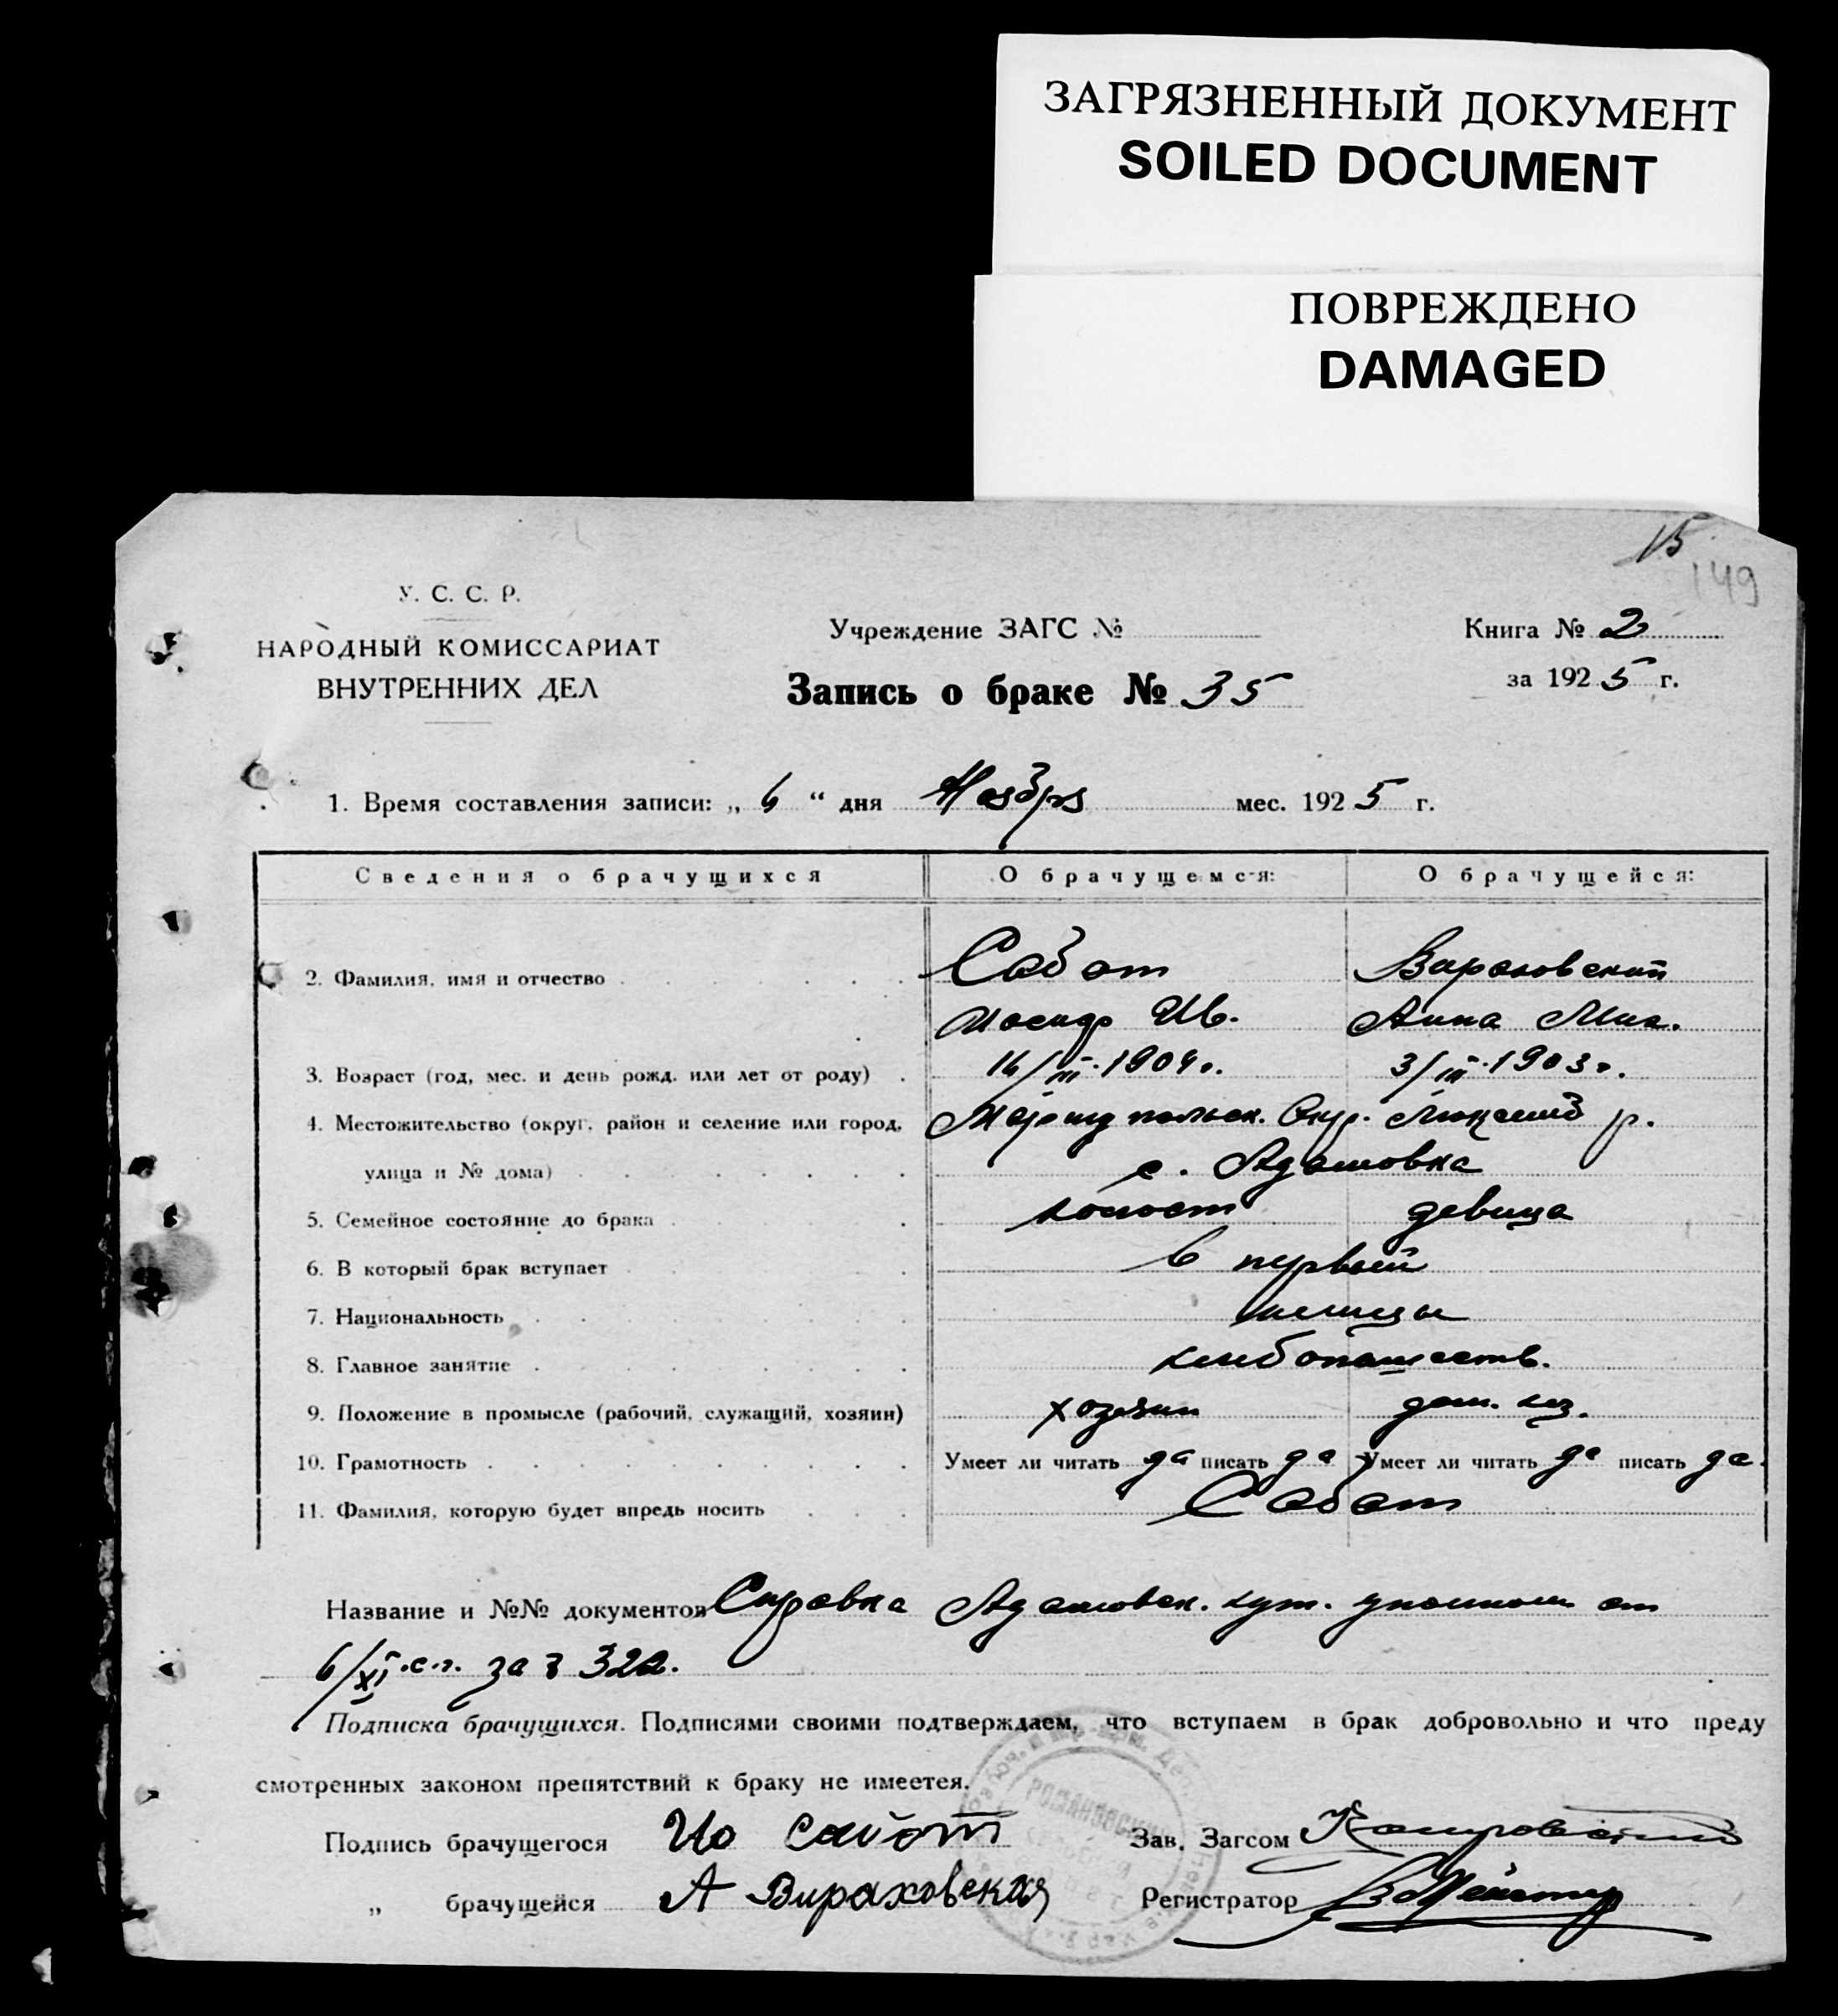 ЗАГРЯЗНЕННЫЙ ДОКУМЕНТ
SOILED DOCUMENT
ПОВРЕЖДЕНО
DAMAGED
15
149
У. С. С. Р.
НАРОДНЫЙ КОМИССАРИАТ
ВНУТРЕННИХ ДЕЛ
Учреждение ЗАГС №
Запись о браке № 35
Книга № 2
за 1925 г.
1. Время составления записи: „ 6 “ дня Ноября мес. 1925 г.
Сведения о брачущихся О брачущемся: О брачущейся:
2. Фамилия, имя и отчество Сабот Вираховский
Иосиф Ив. Анна Мих.
3. Возраст (год, мес. и день рожд. или лет от роду) 16/III 1904 г. 3/III 1903 г.
4. Местожительство (округ, район и селение или город, Мариупольск. Окр. р.
улица и № дома) с. Адамовка
5. Семейное состояние до брака холост девица
6. В который брак вступает в первый
7. Национальность немцы
8. Главное занятие хлебопашеств.
9. Положение в промысле (рабочий, служащий, хозяин) хозяин дом. хоз.
10. Грамотность Умеет ли читать да писать да Умеет ли читать да писать да
11. Фамилия, которую будет впредь носить Сабот
Название и №№ документов Справка Адамовск. от
6/XI с.г. за № 322.
Подписка брачущихся. Подписями своими подтверждаем, что вступаем в брак добровольно и что преду
смотренных законом препятствий к браку не имеетея.
Подпись брачущегося Ио Сабот Зав. Загсом
„ брачущейся А Вираховская Регистратор
РОМАНОВСКИЙ